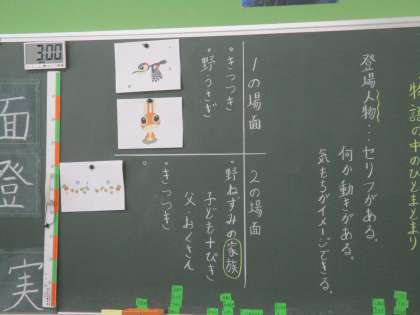 物語の中のひまとまり
登場人物…セリフがある。
何か動きがある。
気もちがイメージできる。
1の場面
・きつつき
・野うさぎ
2の場面
・野ねずみの家族
子ども十ぴき
父・おくさん
・きつつき
・
3:00
面
登
実